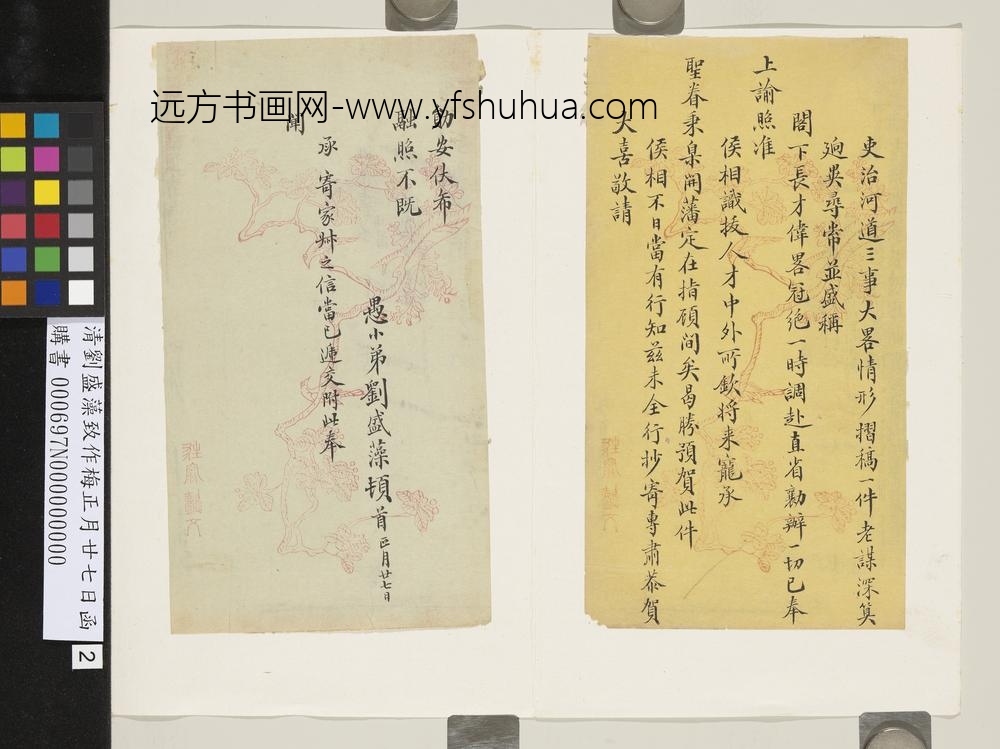 吏治河道三事大畧情形摺稿一件老謀深算
迥異尋常並盛稱
閣下長才偉畧冠絕一時調赴直省勷辦一切已奉
上諭照准
侯相識拔人才中外所欽将来寵承
聖眷秉臬開藩定在指顧间矣曷勝預賀此件
侯相不日當有行知兹未全行抄寄專肅恭賀
大喜敬請
勛安伏布
融照不既
愚小弟劉盛藻頓首正月廿七日
承寄家艸之信當已遞交附此奉
聞
远方书画网-www.yfshuhua.com
清劉盛藻致作梅正月廿七日函
購書 000697N000000000
2